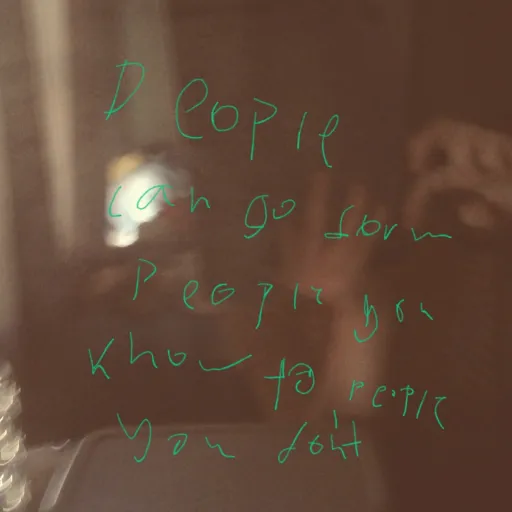 People
can go form
People you
know to people
you don't